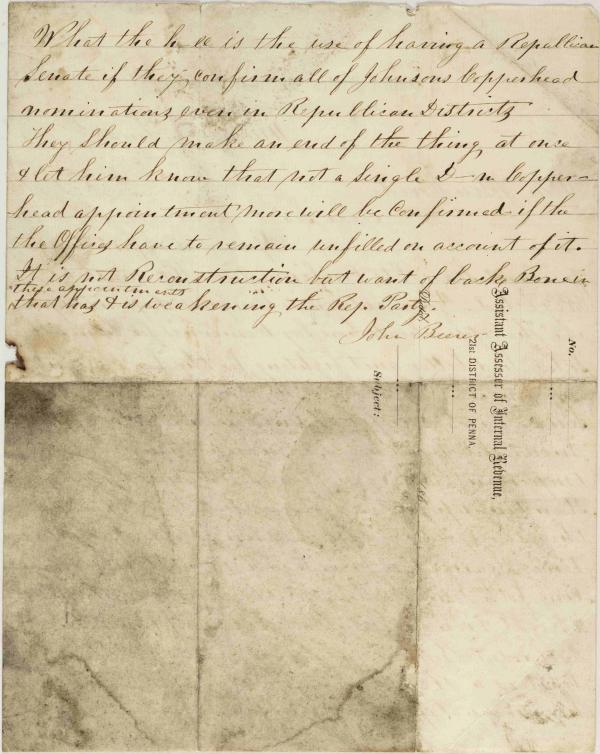 What the h ll is the use of having a Republican
Senate if they confirm all of Johnsons Copperhead
nominations even in Republican Districts
They Should make an end of the thing at once
& let him know that not a Single D—n Copper=
head appointment more will be Confirmed if the
the Offices have to remain unfilled on account of it.
It is not Reconstruction but want of back Bone in
these appointments
that has & is weakening the Rep. Party.
John
No.
Assistant Assessor of Internal Revenue,
21st DISTRICT OF PENNA.
Subject: